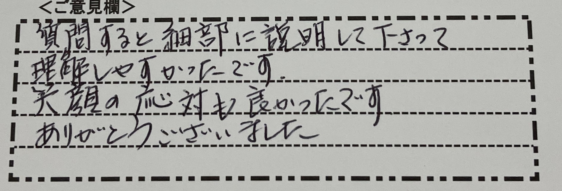 <ご意見欄>
質問すると細部に説明して下さって
理解しやすかったです.
笑顔の応対も良かったです
ありがとうございました